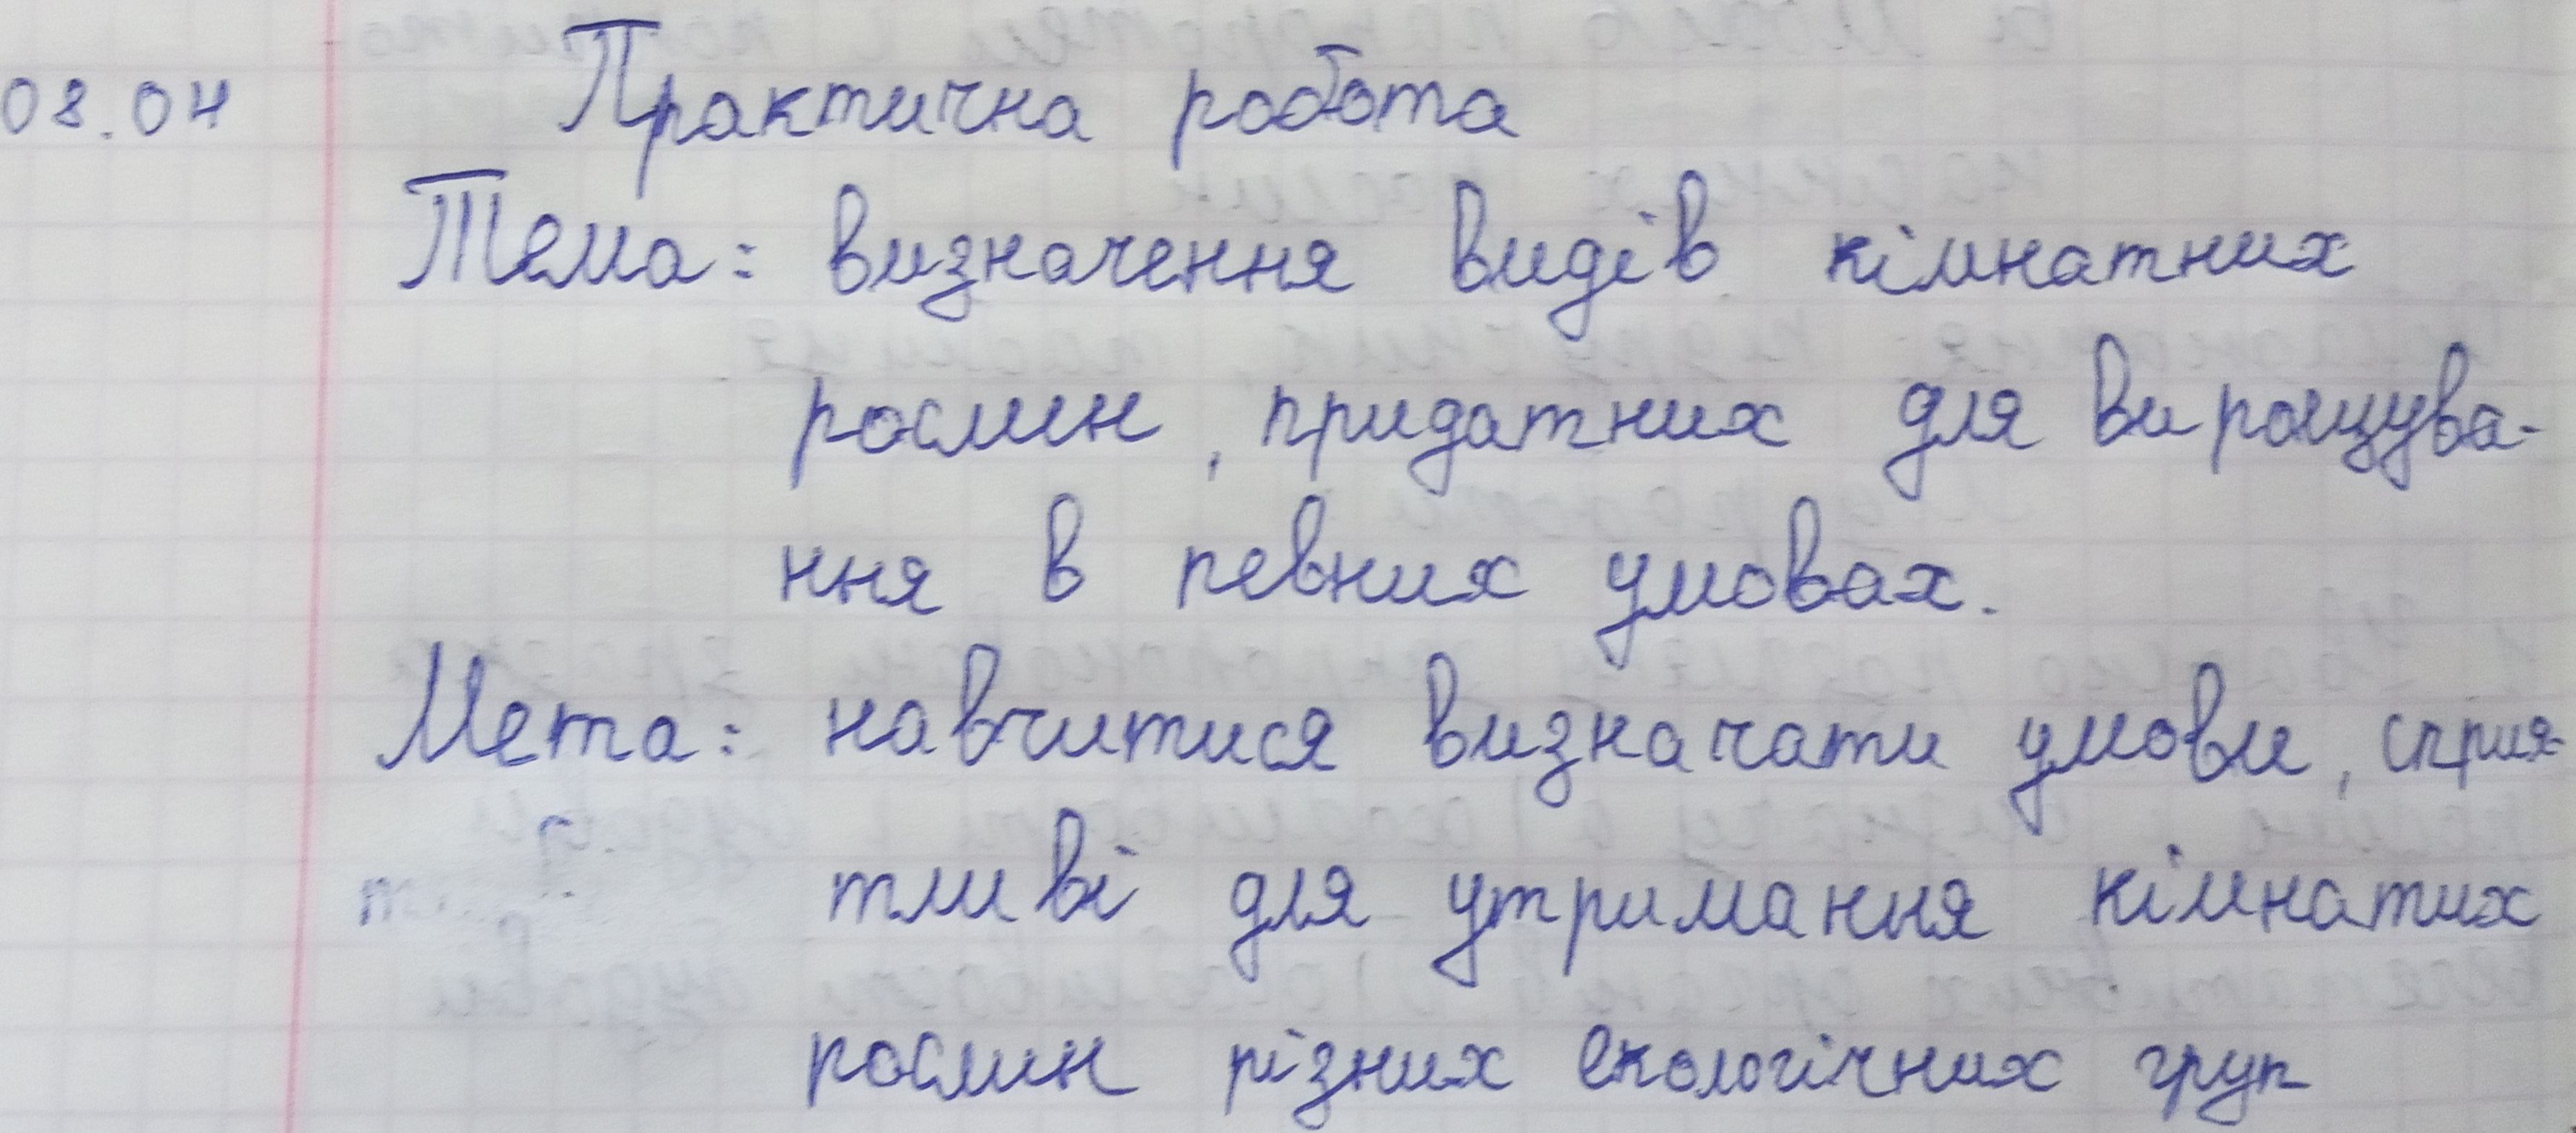 08.04 Практична робота
Тема: визначення видів кімнатних
рослин, придатних для вирощува-
ння в певних умовах.
Мета: навчитися визначати умови, сприя-
тливі для утримання кімнатих
рослин різних екологічних груп